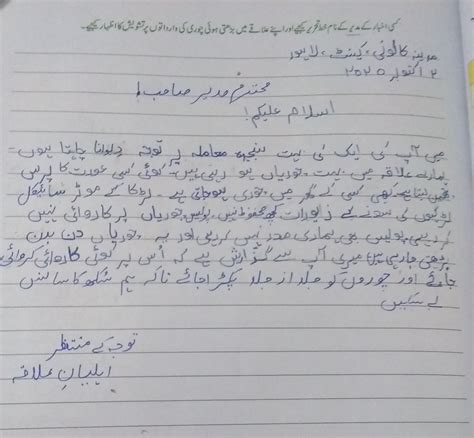 کسی اخبار کے مدیر کے نام خط تحریر کیجیے اور اپنے علاقے میں بڑھتی ہوئی چوری کی وارداتوں پر تشویش کا اظہار کیجیے۔
مدینہ کالونی، کینٹ، لاہور
۲ اکتوبر ۲۰۲۵
محترم مدیر صاحب!
اسلام علیکم!
میں آپ کی ایک نہی بہت سنجیدہ معاملہ پر توجہ دلوانا چاہتا ہوں۔
ہمارے علاقہ میں بہت چوریاں ہو رہی ہیں۔ کوئی کسی عورت کا پرس
کبھی کسی کے گھر میں چوری ہو جاتی ہے۔ لڑکا کے موٹر سائیکل
لڑکیوں کی سونے کے زیورات کچھ محفوظ نہیں پولیس چوریاں پر کاروائی نہیں
کر رہی پولیس بھی ہماری مدد نہیں کر رہی اور یہ چوریاں دن بدن
بڑھتی جا رہی ہیں میری آپ سے گزارش ہے کہ اس پر کوئی کاروائی کروائی
جائے اور چوروں کو جلد از جلد پکڑا جائے تاکہ ہم سکھ کا سانس
لے سکیں
توجہ کے منتظر
اہلیان علاقہ